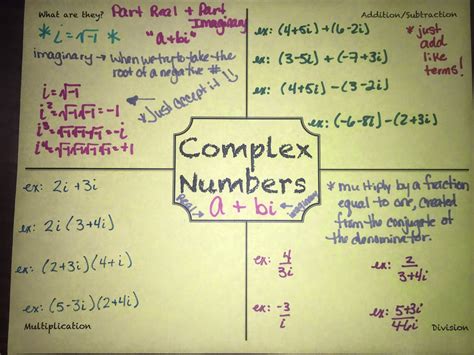 What are they? Part Real + Part Imaginary
* i = √-1 * "a+bi"
imaginary → when we try to take the
root of a negative #
i = √-1
i² = √-1√-1 = -1
i³ = √-1√-1√-1 = -i
i⁴ = √-1√-1√-1√-1 = +1
* Just accept it!
Addition/Subtraction
ex: (4+5i)+(6-2i)
ex: (3-5i)+(-7+3i)
ex: (4+5i)-(3-2i)
ex: (-6-8i)-(2+3i)
* just
add
like
terms!
Complex
Numbers
a + bi
Real
imaginary
ex: 2i + 3i
ex: 2i (3+4i)
ex: (2+3i)(4+i)
ex: (5-3i)(2+4i)
Multiplication
* multiply by a fraction
equal to one, created
from the conjugate of
the denominator.
ex: 4/3i
ex: 2/3+4i
ex: -3/i
ex: 5+3i/4-6i
Division